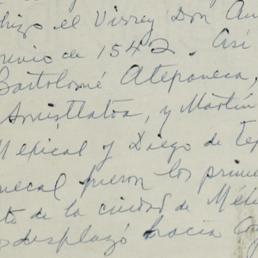 hizo el Virrey Don An
unio de 1542. Así
Bartolomé Atepaneca,
y Martín
Mexical y Diego de Te
necal fueron los prime
to de la ciudad de Méx
desplazó hacia